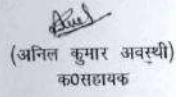 (अनिल कुमार अवस्थी)
क0सहायक